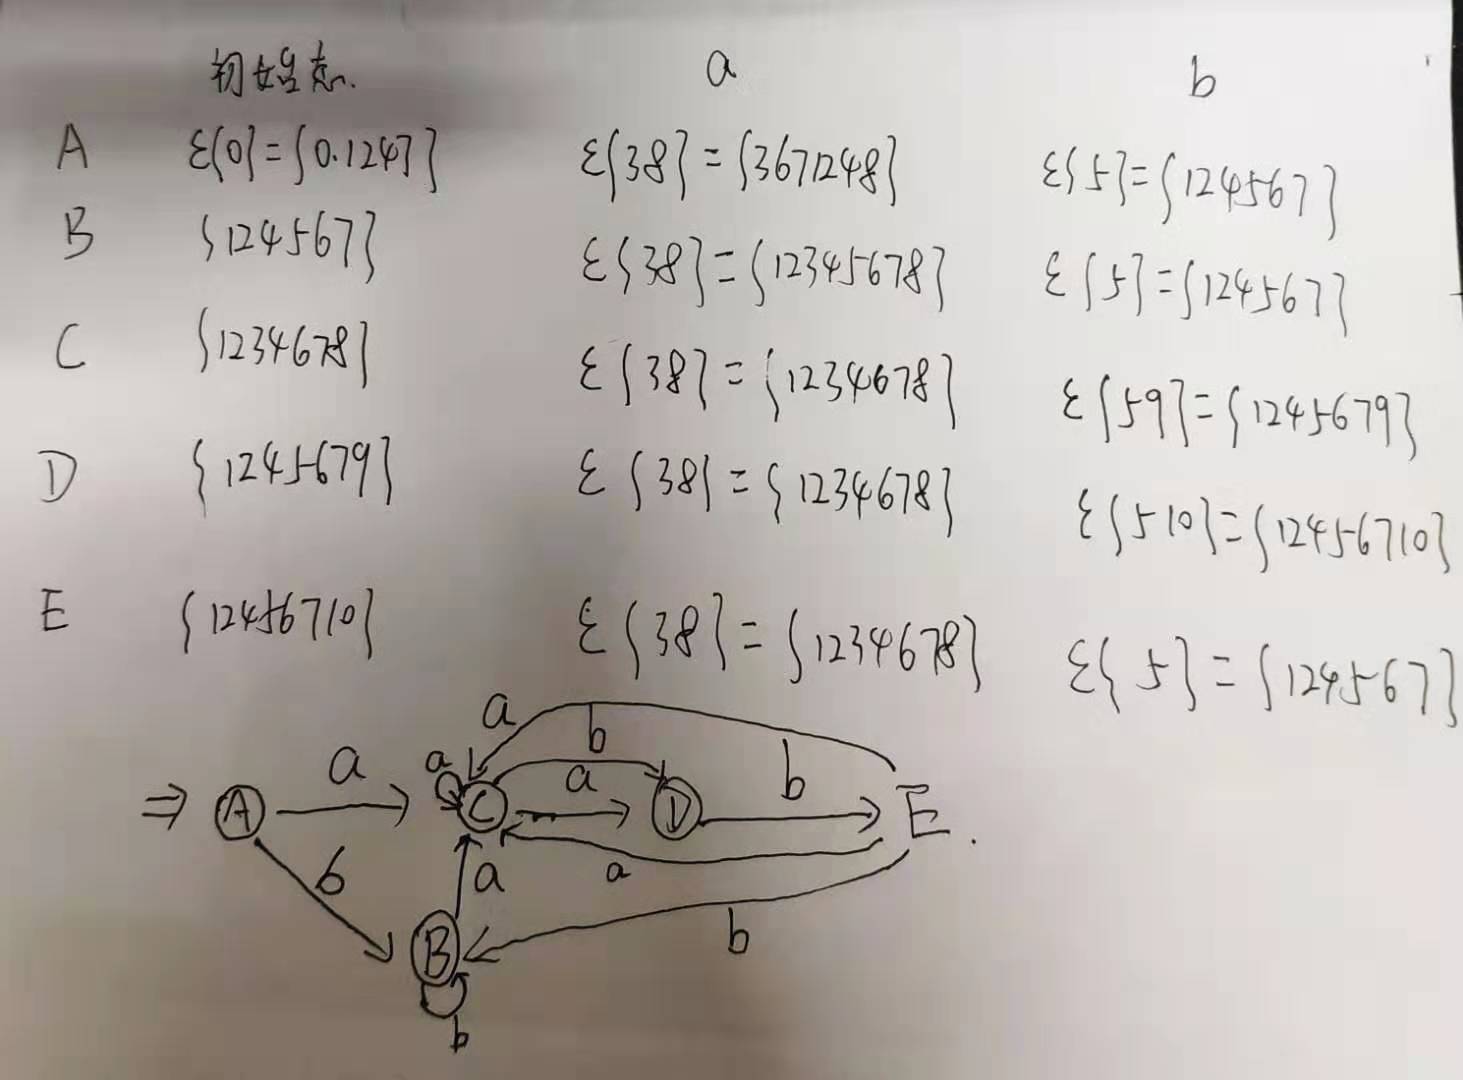 初始态. a b
A ε{0}={0.1247} ε{38}={3671248} ε{5}={124567}
B {124567} ε{38}={12345678} ε{5}={124567}
C {1234678} ε{38}={1234678} ε{59}={1245679}
D {1245679} ε{38}={1234678} ε{510}={12456710}
E {12456710} ε{38}={1234678} ε{5}={124567}
a
b
a a a b
⇒ A C D E.
b a a
B b
b